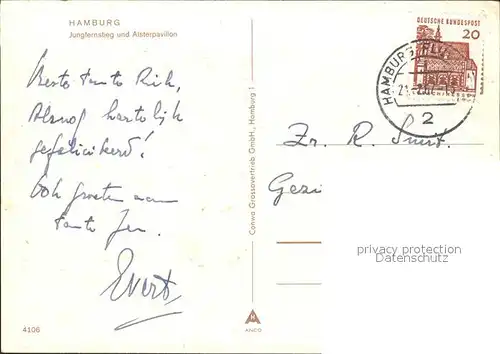 HAMBURG
Jungfernstieg und Alsterpavillon
Beste tante Riek,
Alsnog hartelijk
gefeliciteerd!
Ook groeten aan
tante Jen.
Evert
4106
Conwa Grossovertrieb GmbH., Hamburg 1
ANCO
DEUTSCHE BUNDESPOST
20
HAMBURG FLU
2
Zr. R. Smit.
Gezi
privacy protection
Datenschutz